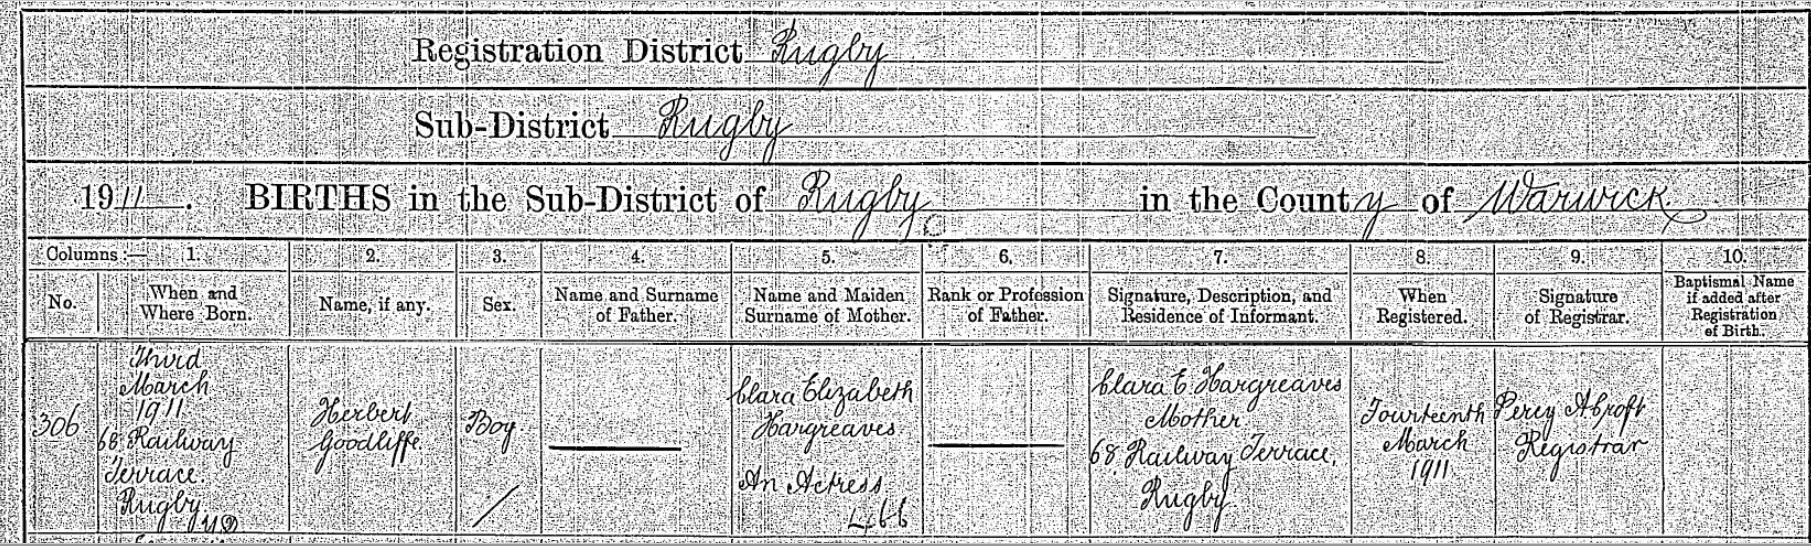 Registration District Rugby
Sub-District Rugby
1911. BIRTHS in the Sub-District of Rugby in the County of Warwick.
Columns:— 1. 2. 3. 4. 5. 6. 7. 8. 9. 10.
No.
When and
Where Born.
Name, if any.
Sex.
Name and Surname
of Father.
Name and Maiden
Surname of Mother.
Rank or Profession
of Father.
Signature, Description, and
Residence of Informant.
When
Registered.
Signature
of Registrar.
Baptismal Name
if added after
Registration
of Birth.
306
Third
March
1911
68 Railway
Terrace.
Rugby
UD
Herbert
Goodliffe.
Boy.
Clara Elizabeth
Hargreaves.
An Actress
Clara E Hargreaves
Mother
68 Railway Terrace,
Rugby.
Fourteenth
March
1911
Percy
Registrar